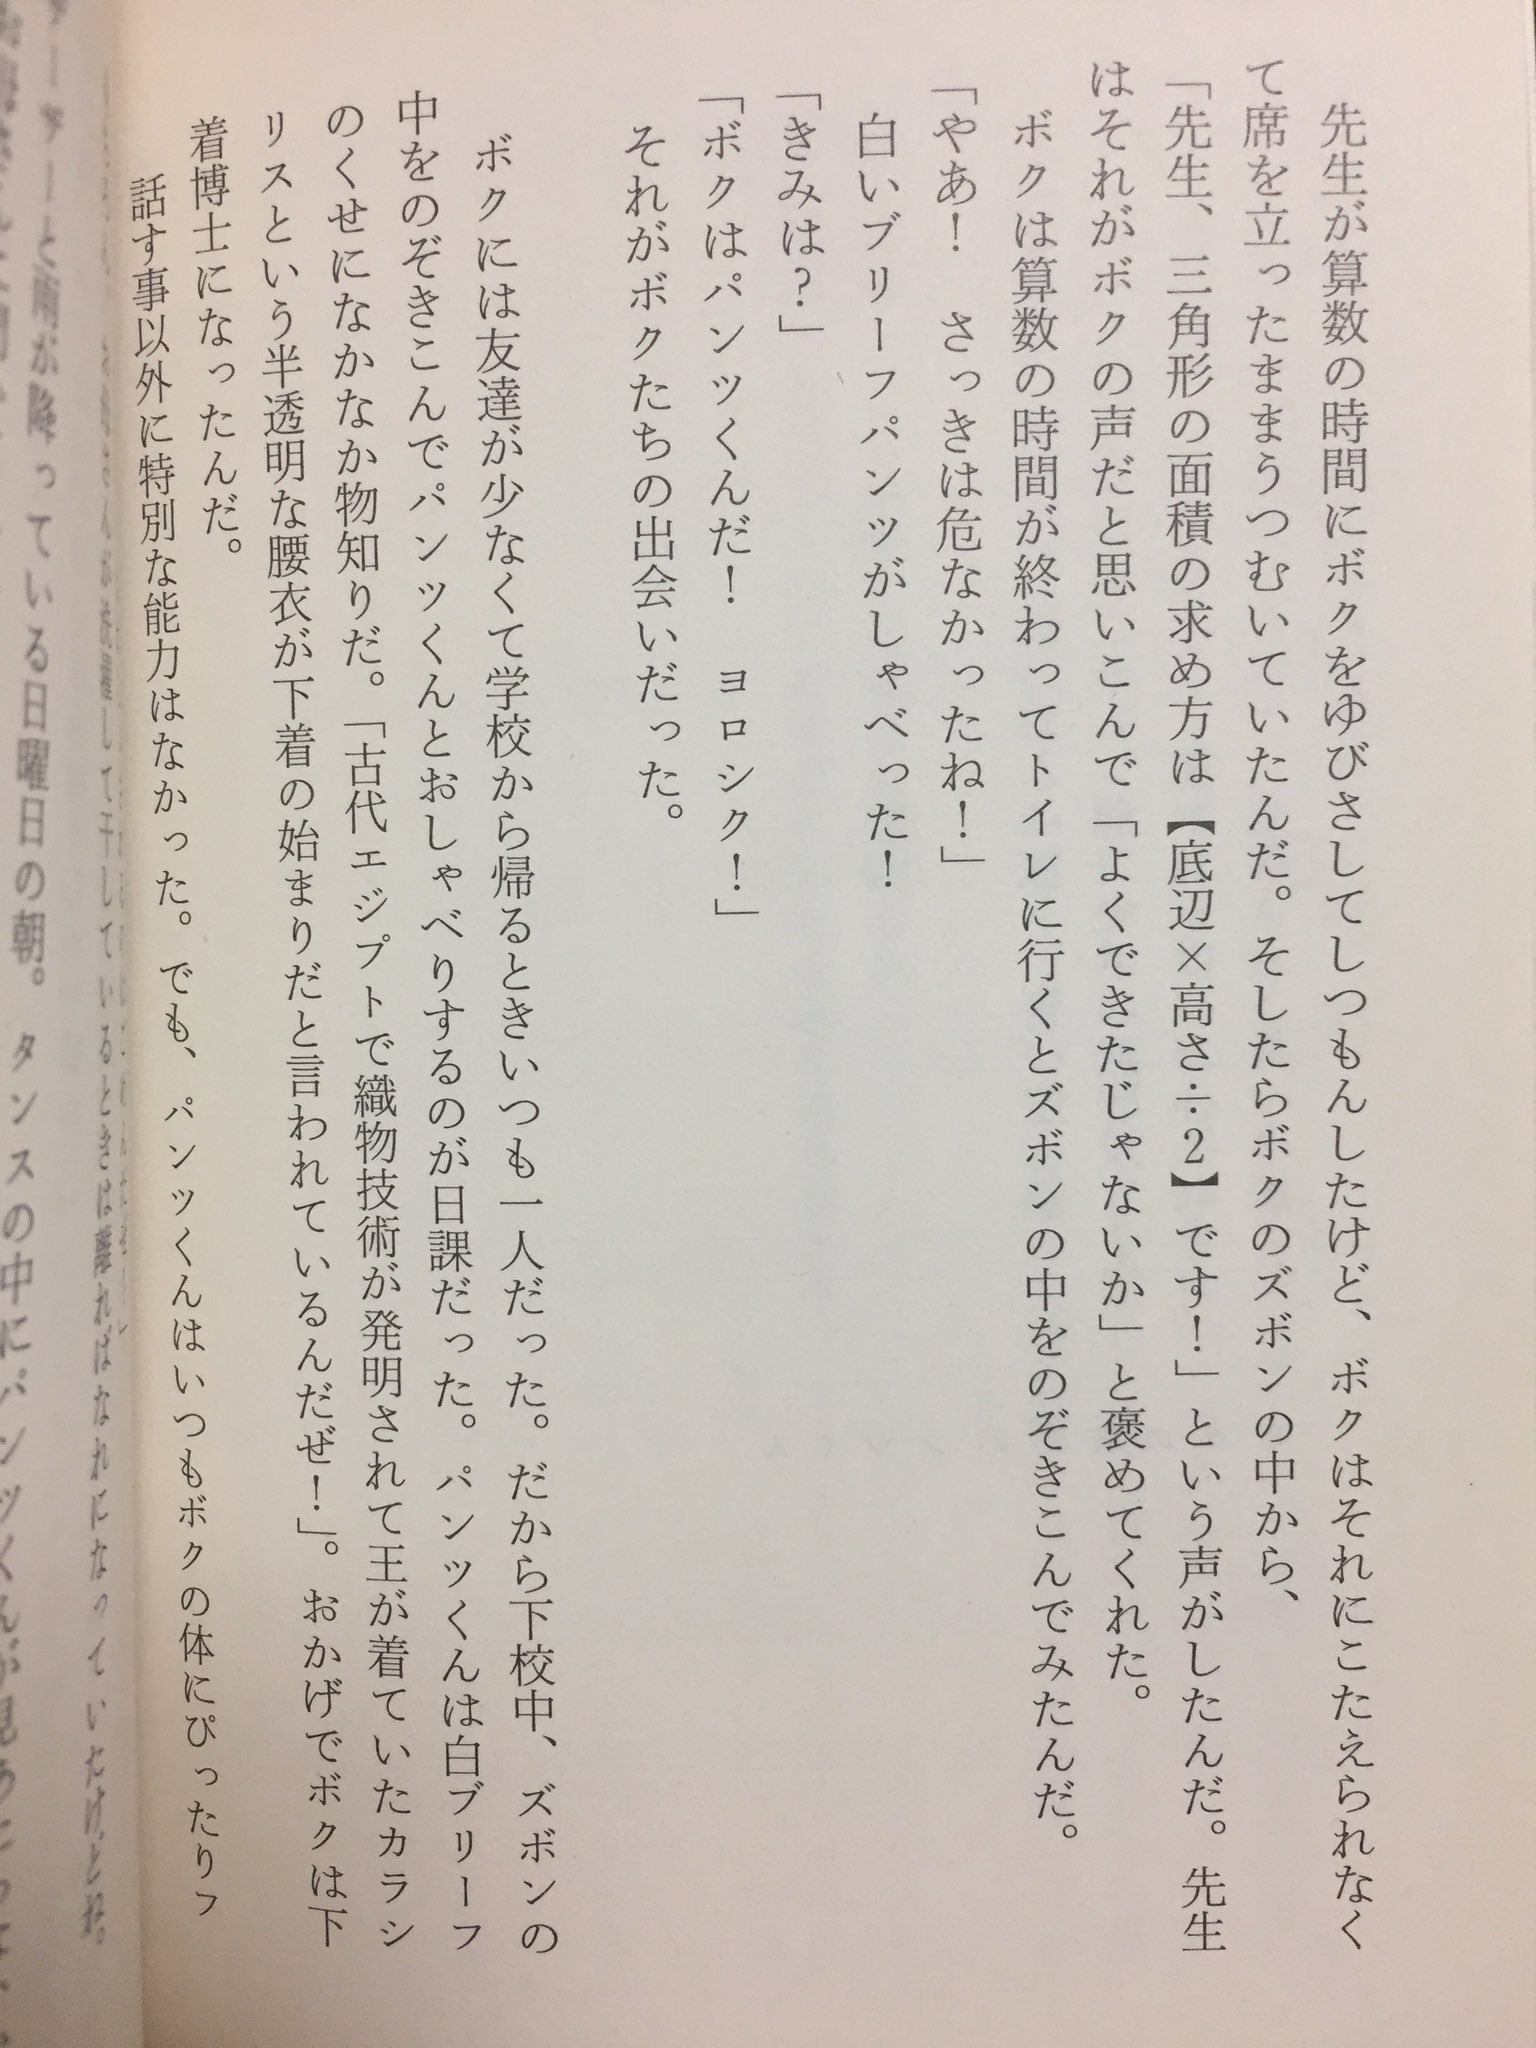 先生が算数の時間にボクをゆびさしてしつもんしたけど、ボクはそれにこたえられなく
て席を立ったままうつむいていたんだ。そしたらボクのズボンの中から、
「先生、三角形の面積の求め方は【底辺×高さ÷2】です！」という声がしたんだ。先生
はそれがボクの声だと思いこんで「よくできたじゃないか」と褒めてくれた。
ボクは算数の時間が終わってトイレに行くとズボンの中をのぞきこんでみたんだ。
「やあ！　さっきは危なかったね！」
白いブリーフパンツがしゃべった！
「きみは？」
「ボクはパンツくんだ！　ヨロシク！」
それがボクたちの出会いだった。
ボクには友達が少なくて学校から帰るときいつも一人だった。だから下校中、ズボンの
中をのぞきこんでパンツくんとおしゃべりするのが日課だった。パンツくんは白ブリーフ
のくせになかなか物知りだ。「古代エジプトで織物技術が発明されて王が着ていたカラシ
リスという半透明な腰衣が下着の始まりだと言われているんだぜ！」。おかげでボクは下
着博士になったんだ。
話す事以外に特別な能力はなかった。でも、パンツくんはいつもボクの体にぴったりフ
して干しているときは離ればなれになっていたけどね。
ザーザーと雨が降っている日曜日の朝。タンスの中にパンツくんが見あ